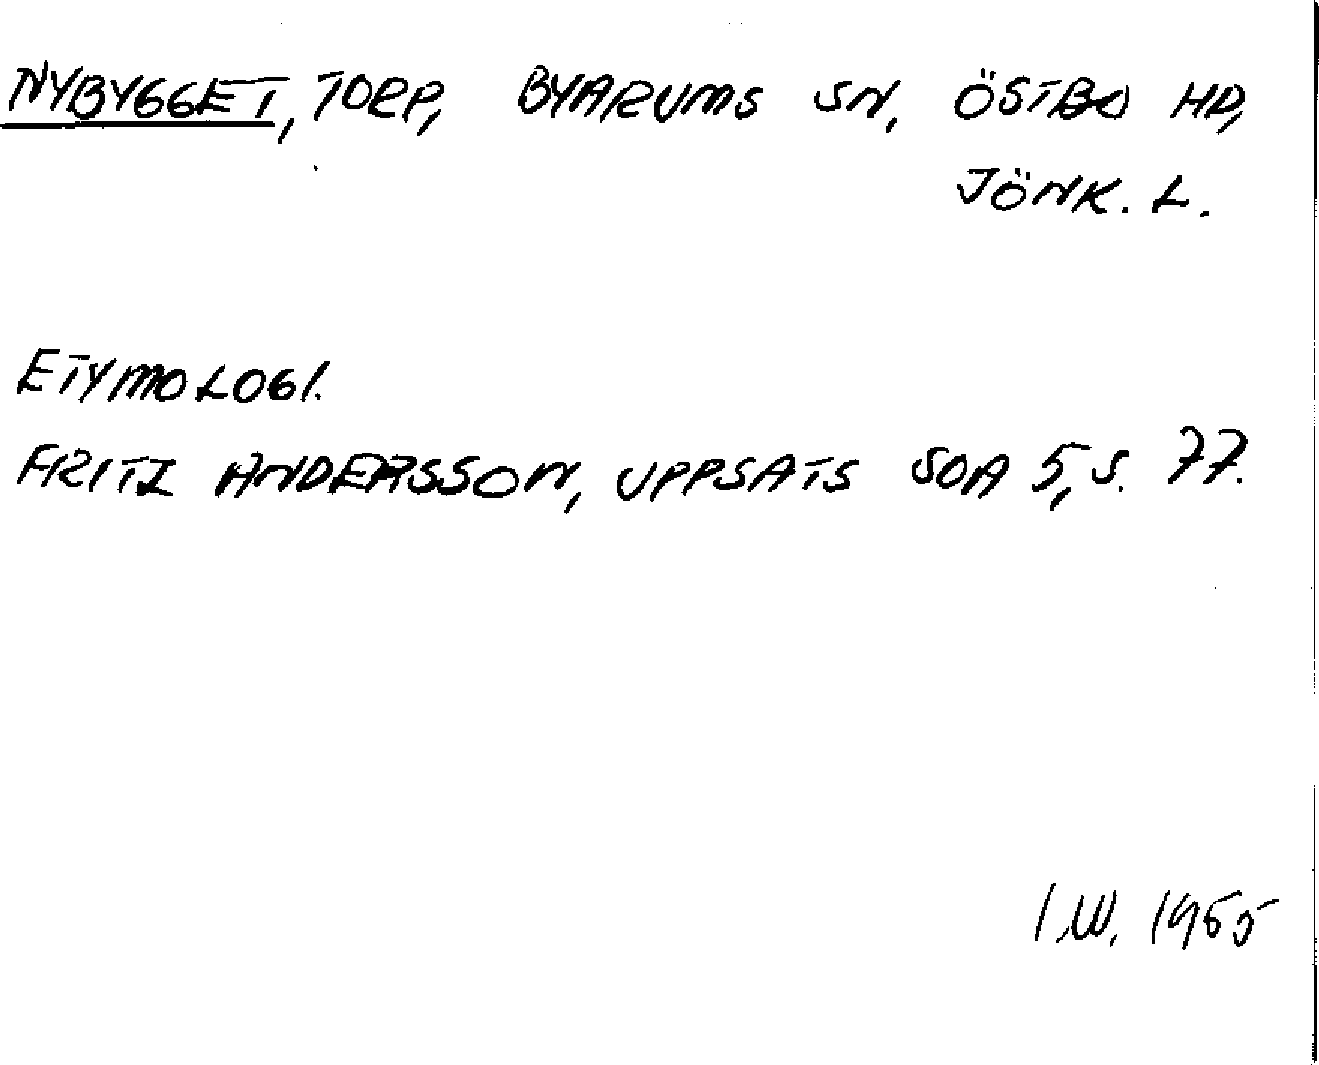 NYBYGGET, TORP, BYARUMS SN, ÖSTBO HD,
JÖNK. L.
ETYMOLOGI.
FRITZ ANDERSSON, UPPSATS SOA 5, S. 77.
I.W. 1965